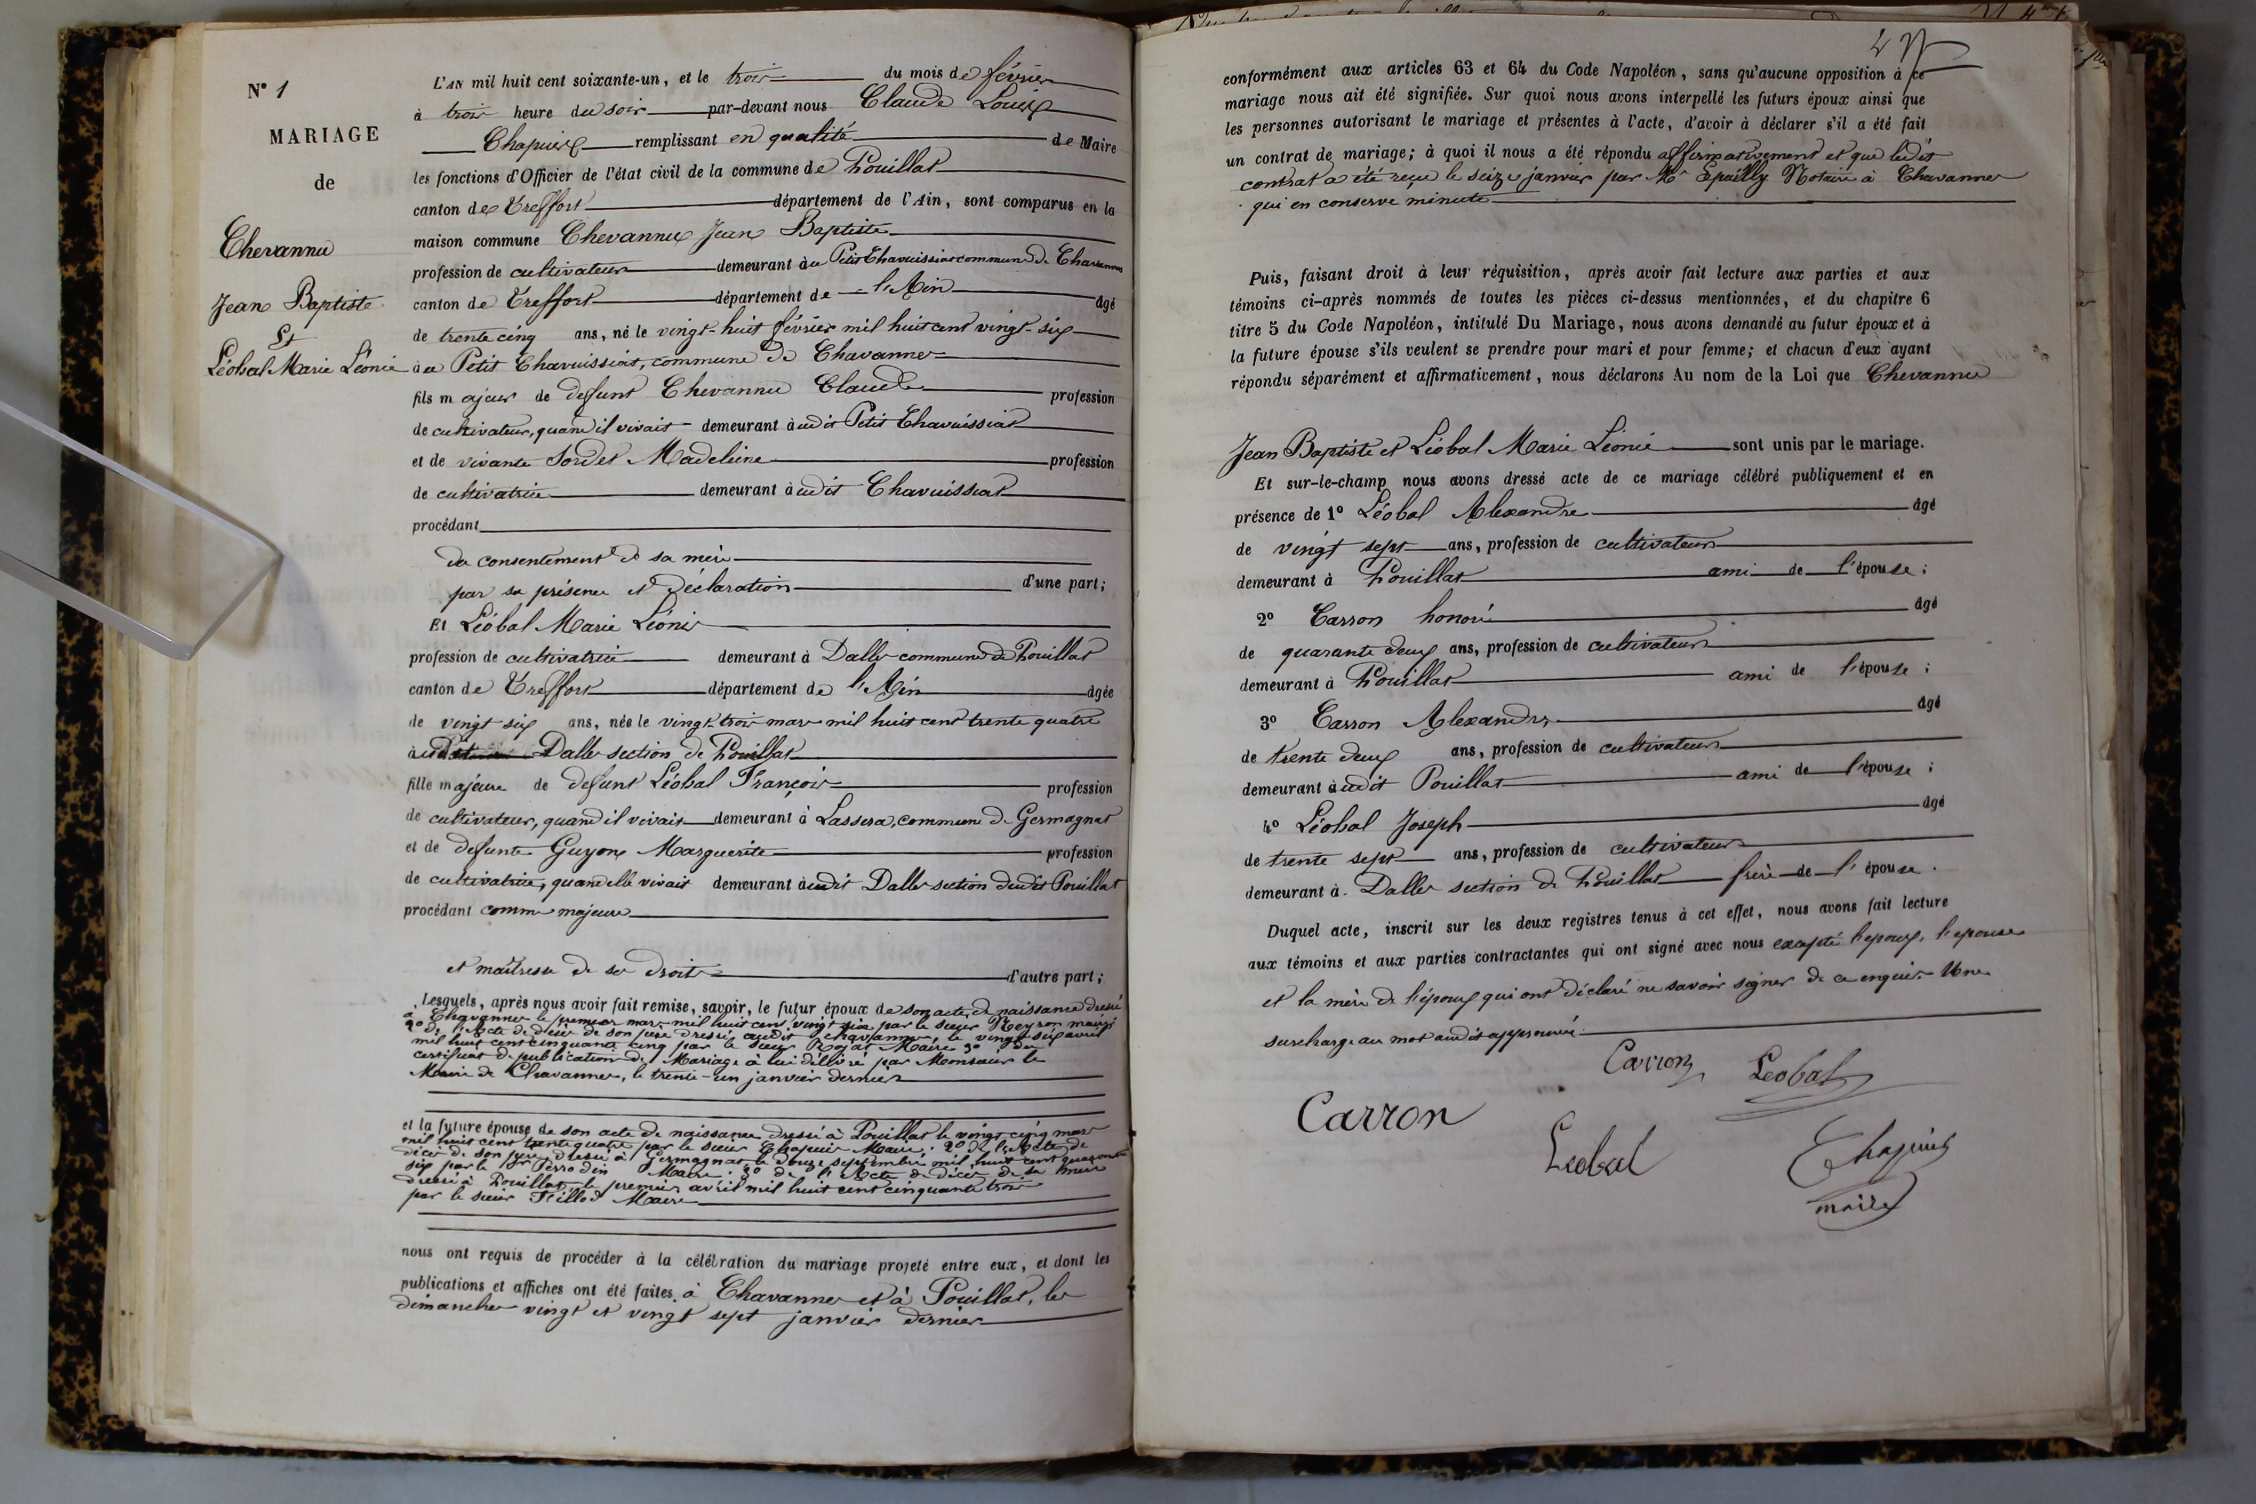 N° 1
MARIAGE
de
Chevannu
Jean Baptiste
Et
Léobal Marie Léonie
L'AN mil huit cent soixante-un, et le trois du mois de février
à trois heure du soir par-devant nous Claude Louis
Chapuis remplissant en qualité de Maire
les fonctions d'Officier de l'état civil de la commune de Pouillat
canton de Treffort département de l'Ain, sont comparus en la
maison commune Chevannu Jean Baptiste
profession de cultivateur demeurant au Petit Chavuissiat commune de Chavannes
canton de Treffort département de l'Ain âgé
de trente cinq ans, né le vingt-huit février mil huit cent vingt-six
au Petit Chavuissiat, commune de Chavannes
fils majeur de defunt Chevannu Claude profession
de cultivateur, quand il vivait demeurant audit Petit Chavuissiat
et de vivante Sordet Madeleine profession
de cultivatrice demeurant audit Chavuissiat
procédant
du consentement de sa mère
par sa présence et déclaration d'une part;
Et Léobal Marie Léonie
profession de cultivatrice demeurant à Dalles commune de Pouillat
canton de Treffort département de l'Ain âgée
de vingt six ans, née le vingt trois mars mil huit cent trente quatre
audit Dalles section de Pouillat
fille majeure de defunt Léobal François profession
de cultivateur, quand il vivait demeurant à Lassera, commune de Germagnat
et de defunte Guyon Marguerite profession
de cultivatrice, quand elle vivait demeurant audit Dalles section dudit Pouillat
procédant comme majeure
et maîtresse de ses droits d'autre part;
Lesquels, après nous avoir fait remise, savoir, le futur époux de son acte de naissance dressé
à Chavannes le premier mars mil huit cent vingt six par le sieur Neyron maire
2° de l'Acte de décès de son père dressé audit Chavannes, le vingt six avril
mil huit cent cinquante cinq par le sieur Royat Maire 3° du
certificat de publication de Mariage à lui délivré par Monsieur le
Maire de Chavannes, le trente-un janvier dernier
et la future épouse de son acte de naissance dressé à Pouillat le vingt cinq mars
mil huit cent trente quatre par le sieur Chapuis Maire; 2° de l'Acte de
décès de son père dressé à Germagnat le douze septembre mil huit cent quarante
six par le Sr Perrodin Maire; 3° de l'Acte de décès de sa mère
dressé à Pouillat, le premier avril mil huit cent cinquante trois
par le sieur Tillod Maire
nous ont requis de procéder à la célébration du mariage projeté entre eux, et dont les
publications et affiches ont été faites à Chavannes et à Pouillat, les
dimanches vingt et vingt sept janvier dernier
conformément aux articles 63 et 64 du Code Napoléon, sans qu'aucune opposition à ce
mariage nous ait été signifiée. Sur quoi nous avons interpellé les futurs époux ainsi que
les personnes autorisant le mariage et présentes à l'acte, d'avoir à déclarer s'il a été fait
un contrat de mariage; à quoi il nous a été répondu affirmativement et que ledit
contrat a été reçu le seize janvier par Me Epailly Notaire à Chavannes
qui en conserve minute
Puis, faisant droit à leur réquisition, après avoir fait lecture aux parties et aux
témoins ci-après nommés de toutes les pièces ci-dessus mentionnées, et du chapitre 6
titre 5 du Code Napoléon, intitulé Du Mariage, nous avons demandé au futur époux et à
la future épouse s'ils veulent se prendre pour mari et pour femme; et chacun d'eux ayant
répondu séparément et affirmativement, nous déclarons Au nom de la Loi que Chevannu
Jean Baptiste et Léobal Marie Léonie sont unis par le mariage.
Et sur-le-champ nous avons dressé acte de ce mariage célébré publiquement et en
présence de 1° Léobal Alexandre âgé
de vingt sept ans, profession de cultivateur
demeurant à Pouillat ami de l'épouse;
2° Carron honoré âgé
de quarante deux ans, profession de cultivateur
demeurant à Pouillat ami de l'épouse;
3° Carron Alexandre âgé
de trente deux ans, profession de cultivateur
demeurant audit Pouillat ami de l'épouse;
4° Léobal Joseph âgé
de trente sept ans, profession de cultivateur
demeurant à Dalles section de Pouillat frère de l'épouse.
Duquel acte, inscrit sur les deux registres tenus à cet effet, nous avons fait lecture
aux témoins et aux parties contractantes qui ont signé avec nous excepté l'époux, l'épouse
et la mère de l'époux qui ont déclaré ne savoir signer de ce enquis. Une
surcharge au mot audit approuvée.
Carron Léobal
Carron
Léobal
Chapuis
maire